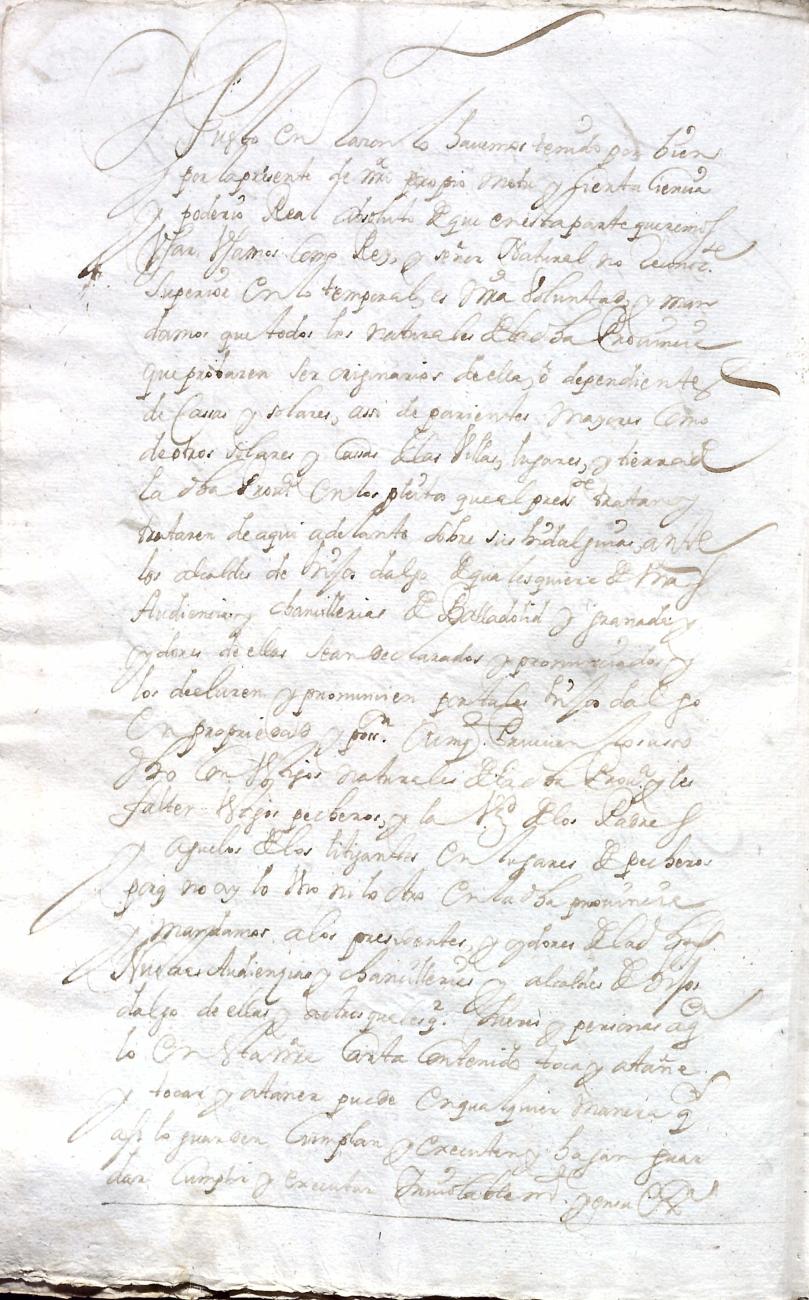 Justo en Raçon lo havemos tenido por bien
y por la presente de nr̃o propio motu y çierta çiencia
y poderio Real absoluto de que en esta parte queremos
Usar, Usamos como Rey, y señor Natural no Reconoc.te
Superior en lo temporal, es nr̃a Voluntad, y man
damos que todos los naturales de la dha Provincia
que probaren ser originarios de ella, o dependientes
de Casas y solares, assi de parientes mayores como
de otros solares y casas de las Villas, lugares, y tierras de
la dha Prou.a en los pleitos que al pres.te tratan y
trataren de aqui adelante sobre sus hidalguias, ante
los alcaldes de hijos dalgo de qualesquiera de nr̃as
Audiencias y chancillerias de Valladolid y granada y
oydores de ellas sean declarados y pronunciados y
los declaren y pronuncien por tales hijos dalgo
en propriedad y poss.n
dho con tgos naturales de la dha Prou.a y les
falten tgos pecheros, y la Vez.d de los Padres
y aguelos de los litigantes en lugares de pecheros
porq no ay lo Uno ni lo otro en la dha provincia
y mandamos a los presidentes, y oydores de las dhas
Nuestras Audiençias y chancillerias y alcaldes de hijos
dalgo de ellas, y otros qualesq.r Jueçes y personas a q.n
lo en esta nr̃a Carta Contenido toca y atañe
y tocar y atañer puede en qualquier manera q
assi lo guarden Cumplan y executen y hagan guar
dar Cumplir y executar Inviolablem.te y en su